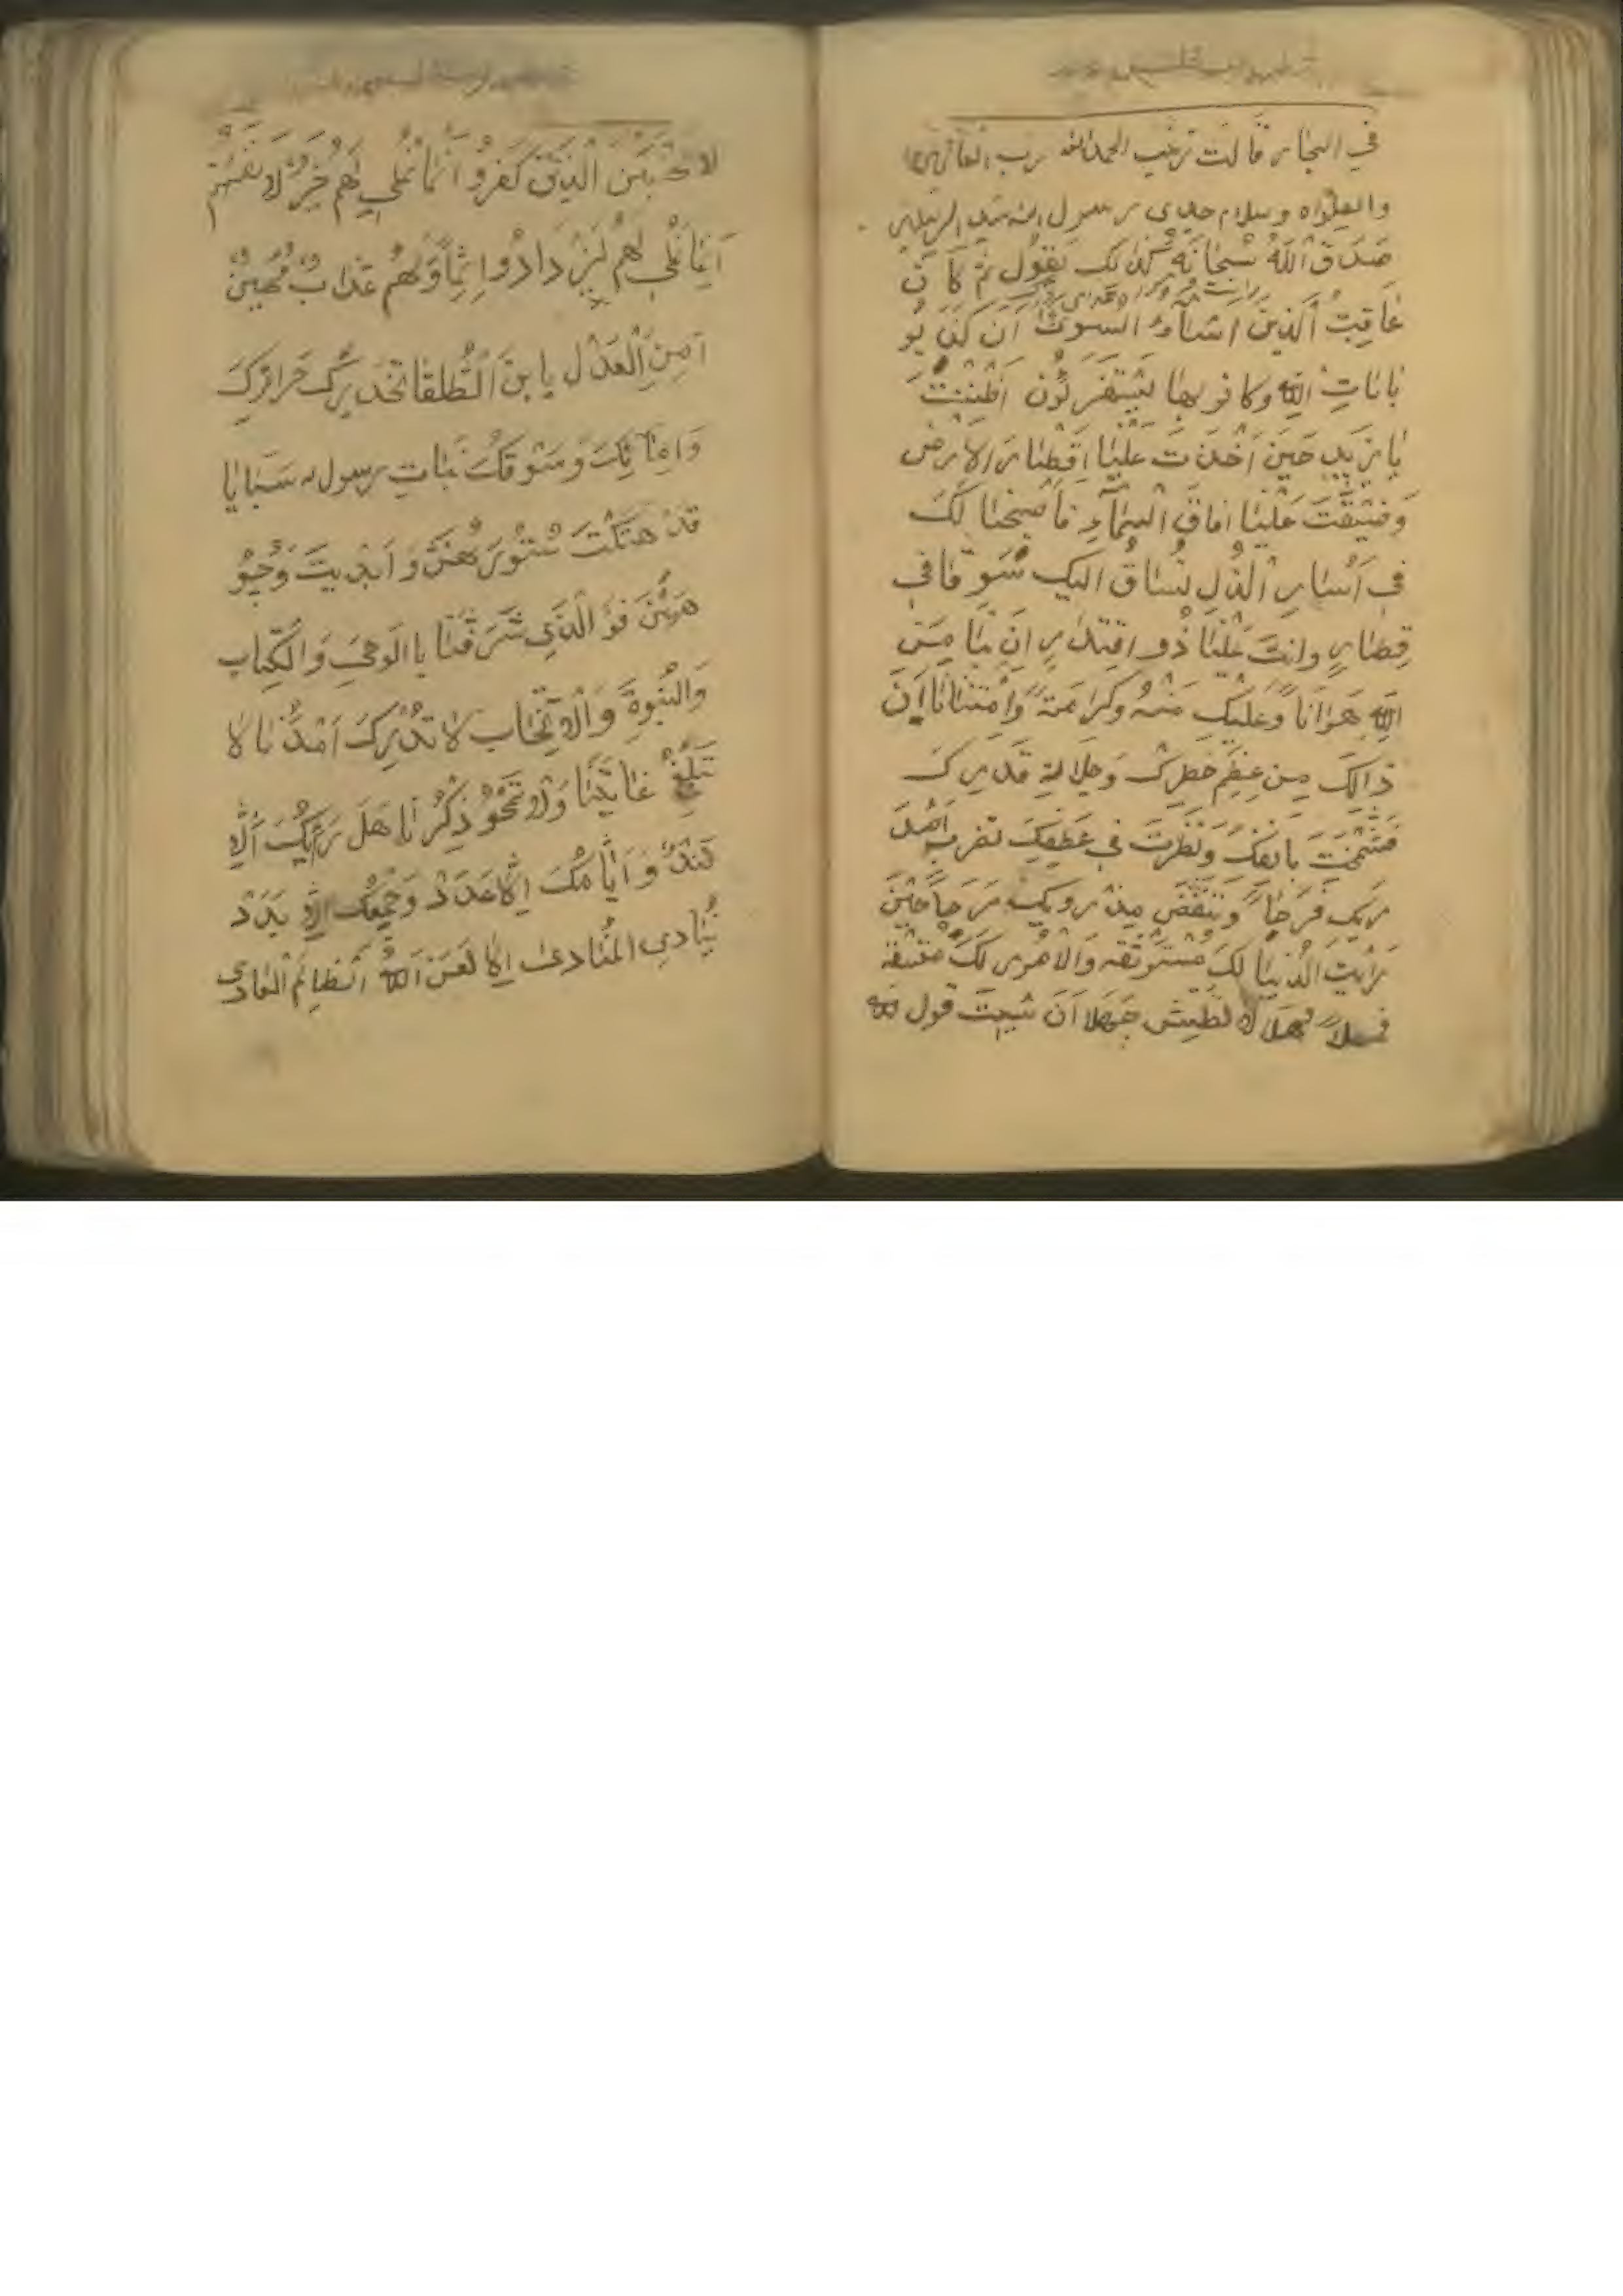 في البحار قالت زينب الحمدالله رب العالمين
والصلواه وسلام جدي رسول الله سيد المرسلين
صَدَقَ اللهُ سُبْحَانَهُ كَذالِكَ يَقُول ثُمَّ كَا نَ
عَاقِبَتُ اَلذينَ اَسَآءُ السوىٰ اَن كَذَّ بُو
بِايَاتِ اللهِ وكانو بِهَا يَسْتَهْزِئُون اَظَنَنْتَ
يَا يَزيدِ حَينَ اَخَذتَ عَلَيْنا اَقْطَارَ الاَرْضِ
وَضَيَّقْتَ عَلَيْنا افاقَ اْلسَماَّءِ فَاَصْبَحْنا لَكَ
فِي اَسَارِ اَلذُلِ نُسَاقُ اليَكَ سَوْقَا في
قِطارٍ وانتَ عَلَيْنَا ذُو اقتِدارٍ اَنَ بِنَا مِنَ
اللهِ هَوَانَاً وعَلَيْكَ مَنْهُ وكَرامَتَهً وَاِمْتنَانَا اَنَ
ذالِكَ مِن عِظَمِ خَطَرِكَ وَجَلالَهِ قَدرِكَ
فَشَمَخْتَ بِانفِكَ وَنَظَرتَ في عَطفِكَ تضرب اَصْدَ
رَيكَ فَرَحَاً وَتَنْفُضَ مِذْرَويكَ مَرَحَاً حيْنَ
رَأيتَ الدُنْيَا لكَ مُسْتَوثَقه وَالاُمُور لَكَ متسقه
فمهلاً مهَلاً لا تَطِيش جَهَلا اَنَ نَسيتَ قول الله
لا تحْسَبَنَ الَّذينَ كَفَرُو اَنَّما نُمْلي لَهُم خَيرٌ لِاَنفُسِهِم
اَنَما نُمْلي لهُم لَيَزْدادُوا اِثماً وَلَهُم عَذابٌ مُهينٌ
اَمِنَ الْعَدْلِ يا ابنَ الْطُلَقا تخديرُكَ حَرائِرَكَ
وَامائِكَ وَسَوقكَ بَنَاتِ رسول الله سَبَايَا
قَدْ هَتَكْتَ سُتُوْرَهُنَّ وَ اَبْدَيتَ وُجُوْ
هَهُنَّ فو الَّذي شَرَّفَنَا باالَوحيَ وَالكِتابِ
وَالنُبُوةِ وَالاَنتِخاب لاتُدْرِكَ اَمَدَنَا لا
تَبْلُغْ غايَتَنَا وَلا تَمْحُو ذِكْرَنا هَلْ رَأيُكَ اِلّا
فَنَدْ وَ اَيَّامُكَ اِلّا عَدَدْ وَ جَمْعُكَ اِلّا بَدَدْ
يُنَادي المُنَادى اَلا لَعَنَ اللهُ الظَالِمَ الْعادى